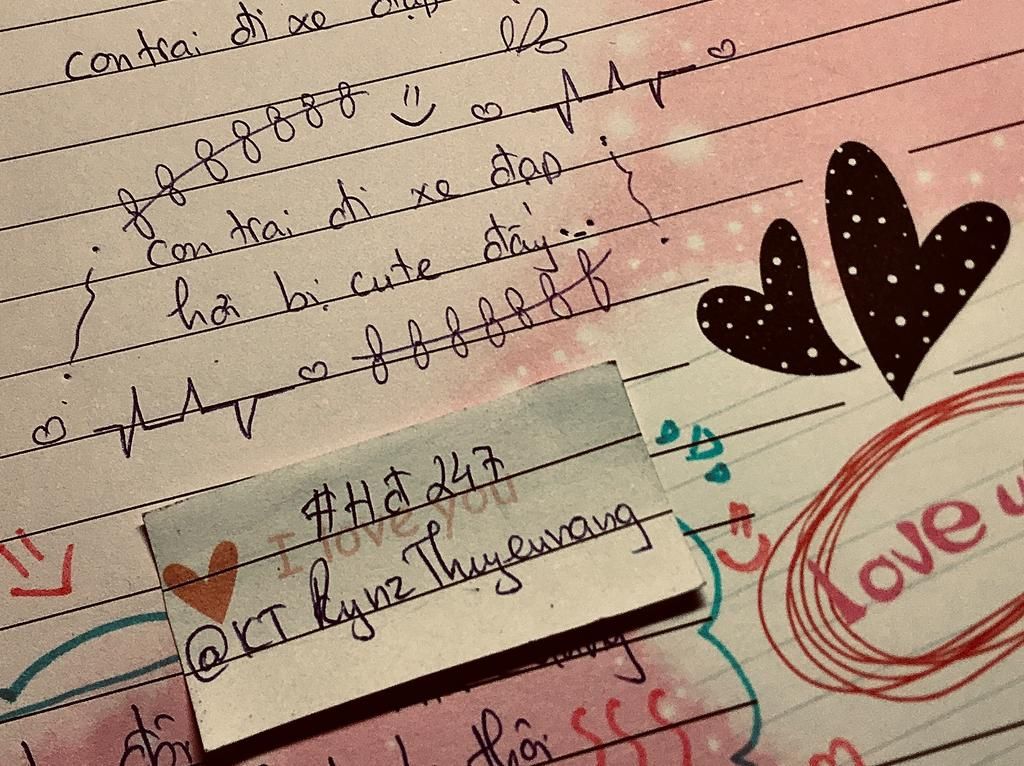 con trai đi xe đạp
con trai đi xe đạp
hơi bị cute đấy...
#Hđ 247
I love you
@KT Rynz Thuyeurang
love u
thôi